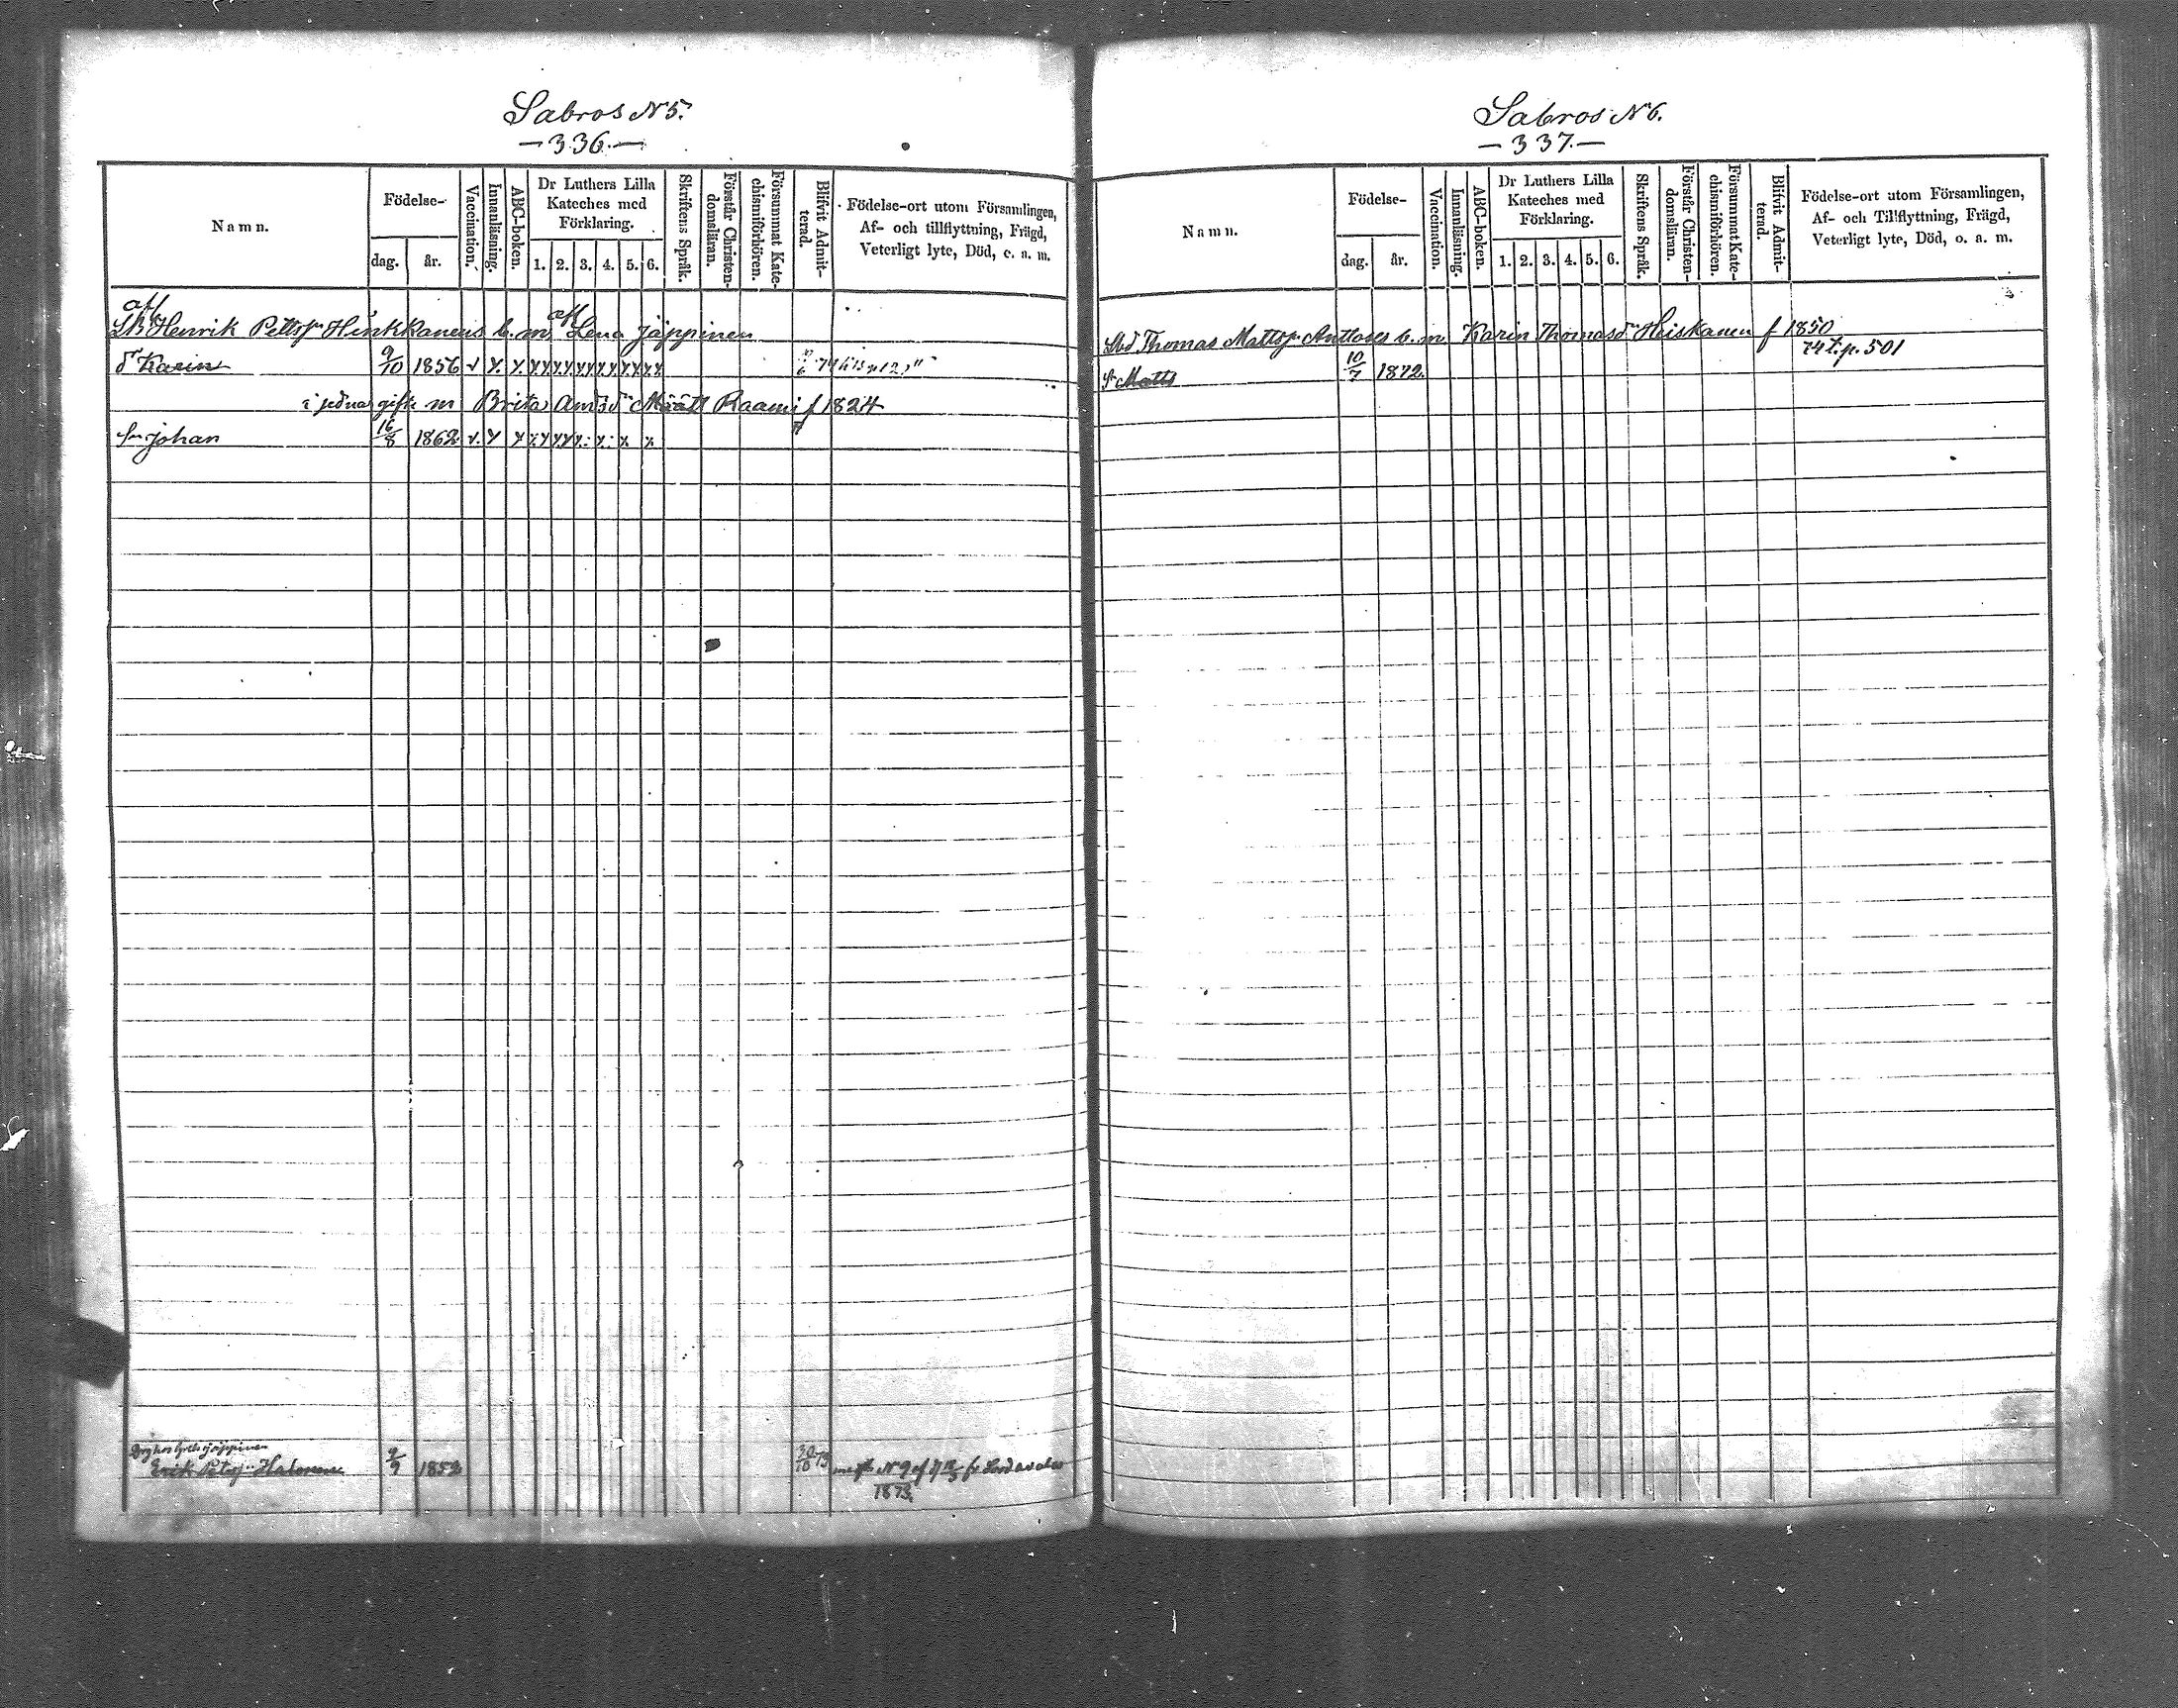 Sabros N5.
—336.—
Namn.
Födelse-
dag.
år.
Vaccination.
Innanläsning.
ABC-boken.
Dr Luthers Lilla
Kateches med
Förklaring.
1. 2. 3. 4. 5. 6.
Skriftens Språk.
Förstår Christen-
domsläran.
Försummat Kate-
chismiförhören.
Blifvit Admit-
terad.
Födelse-ort utom Församlingen,
Af- och tillflyttning, Frägd,
Veterligt lyte, Död, o. a. m.
Henrik Hinkkanens b. m. Lena Jäppinen
dr Karin 9/10 1856
gifte m Brita Andsdr Määtt Raami f 1824
Sn Johan 16/8 1862
Erik Halonen 9/9 1852 30/10 73 N 9 1873.
Sabros N6.
—337.—
Namn.
Födelse-
dag.
år.
Vaccination.
Innanläsning.
ABC-boken.
Dr Luthers Lilla
Kateches med
Förklaring.
1. 2. 3. 4. 5. 6.
Skriftens Språk.
Förstår Christen-
domsläran.
Försummat Kate-
chismiförhören.
Blifvit Admit-
terad.
Födelse-ort utom Församlingen,
Af- och Tillflyttning, Frägd,
Veterligt lyte, Död, o. a. m.
Thomas Mattsn b. m. Karin Thomasdr Heiskanen f 1850
74 t. p. 501
Sn Matts 10/7 1872